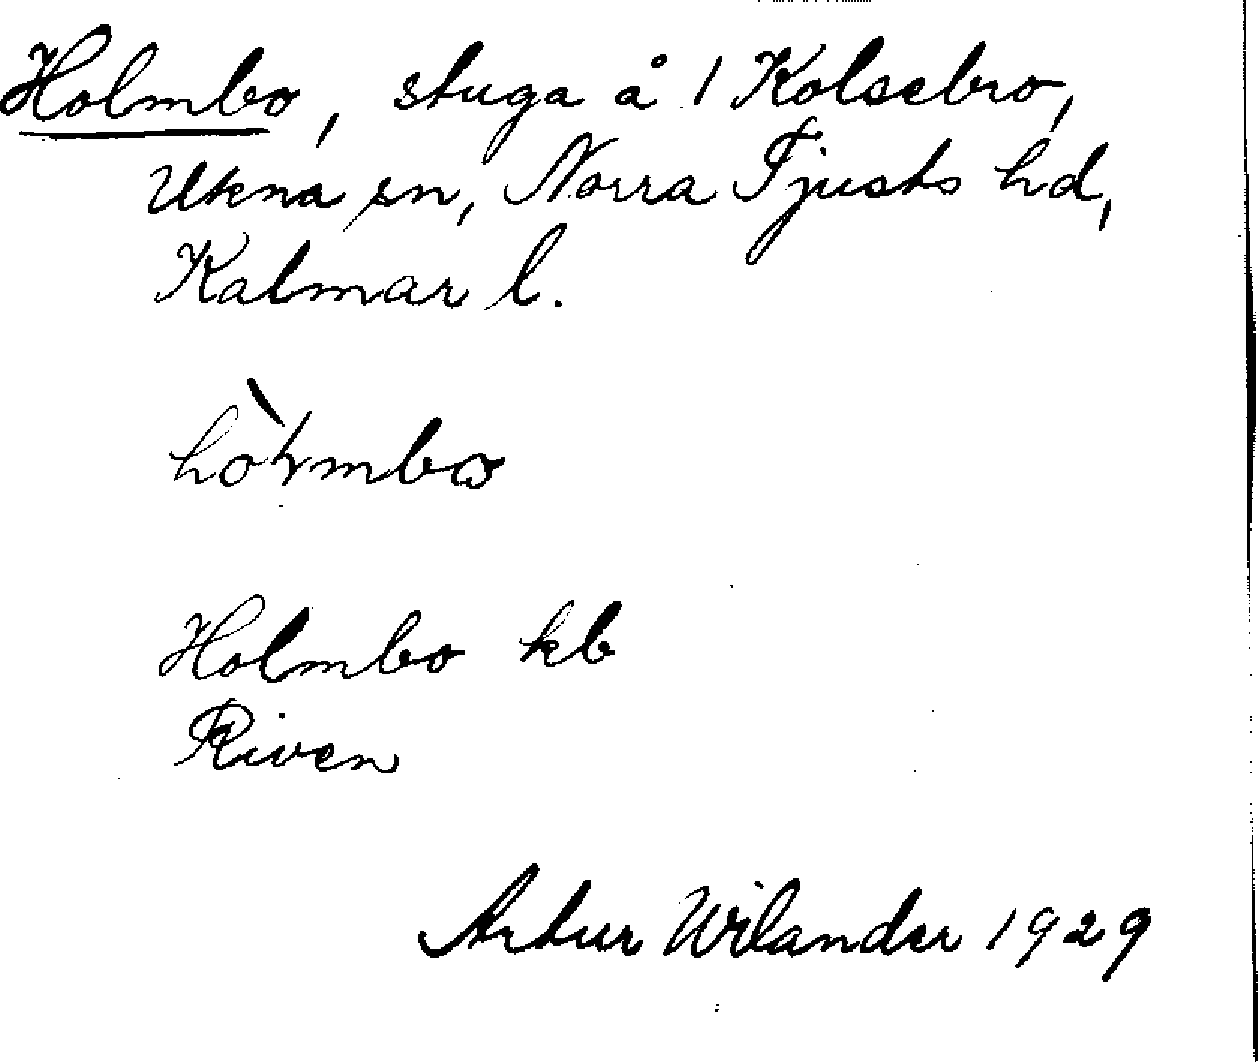 Holmbo, stuga å 1 Kolsebro,
Ukna sn, Norra Tjusts hd,
Kalmar l.
Holmbo kb
Riven
Artur Wilander 1929